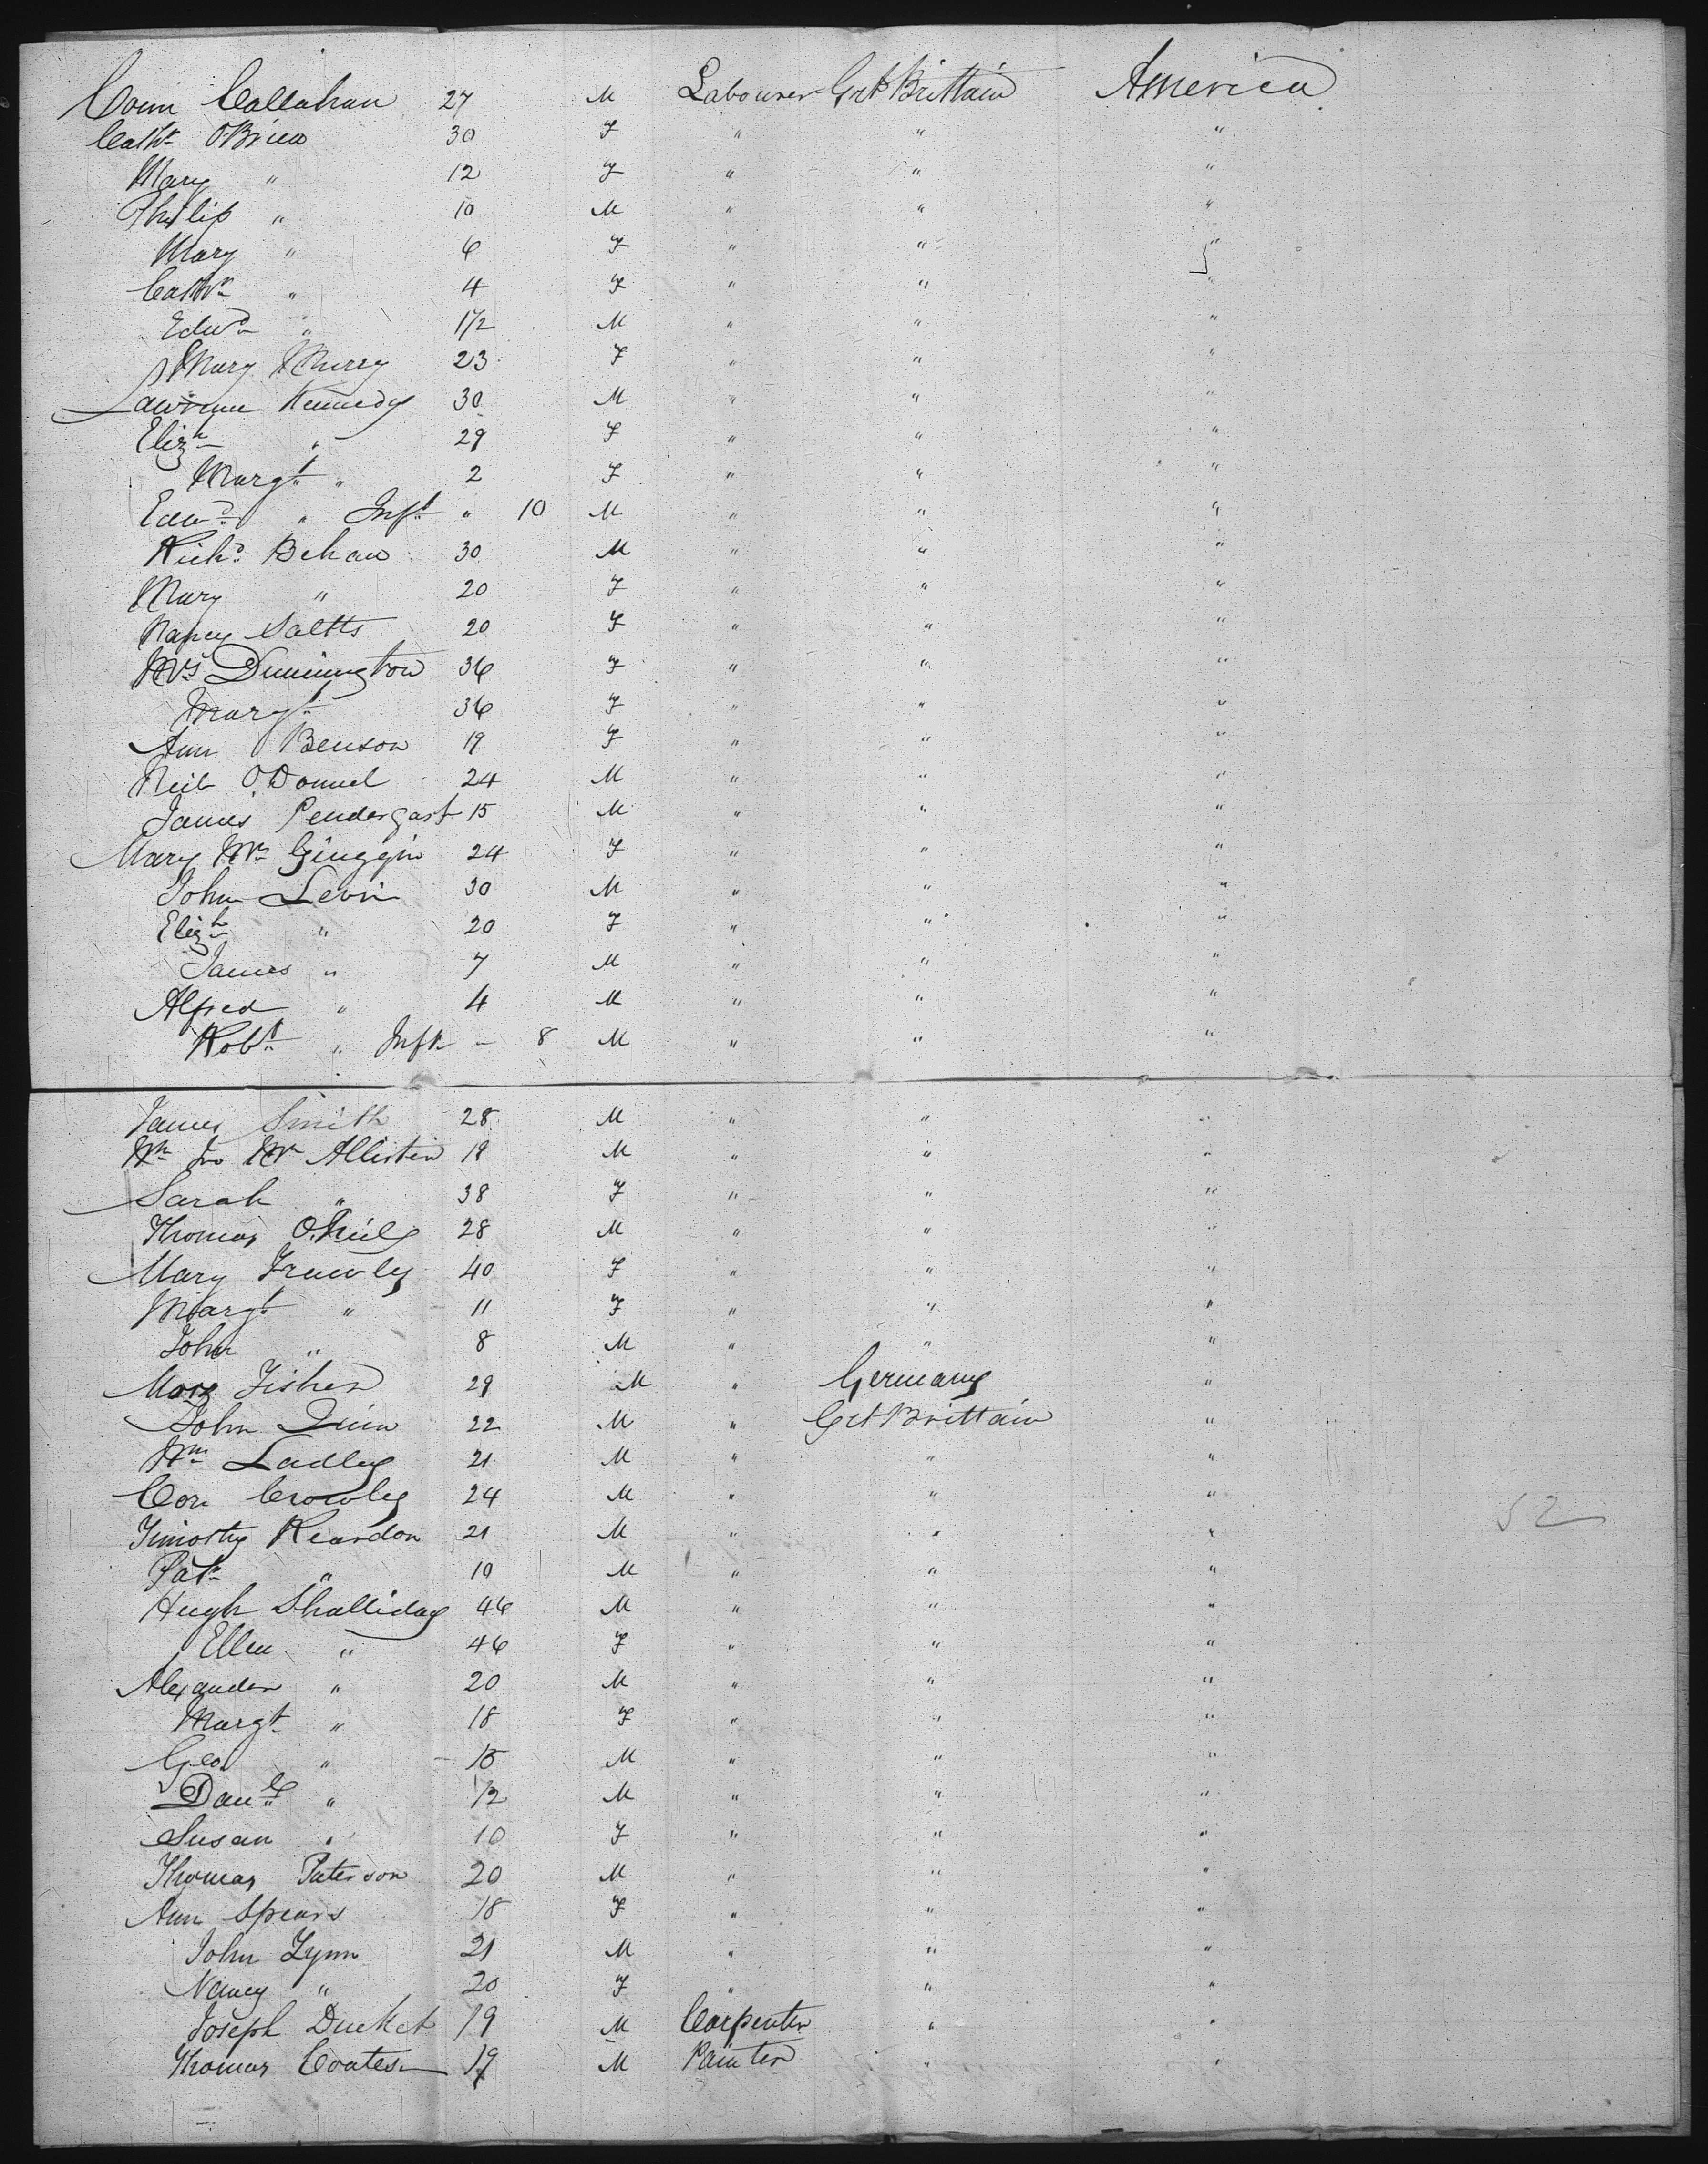 Corn Callahan 27 M Labourer Grt Brittain America
Cathn O'Brien 30 F " " "
Mary " 12 F " " "
Philip " 10 M " " "
Mary " 6 F " " "
Cathn " 4 F " " "
Edwd " 1 1/2 M " " "
Mary Murry 23 F " " "
Lawrence Kennedy 30 M " " "
Elizh " 29 F " " "
Margt " 2 F " " "
Edwd " Inft " 10 M " " "
Richd Behan 30 M " " "
Mary " 20 F " " "
Nancy Saltts 20 F " " "
Mrs Dunnington 36 F " " "
Margt 36 F " " "
Ann Benson 19 F " " "
Neil O'Donnel 24 M " " "
James Pendergast 15 M " " "
Mary Mc Ginggin 24 F " " "
John Levi 30 M " " "
Elizh " 20 F " " "
James " 7 M " " "
Alfred " 4 M " " "
Robt " Inft - 8 M " " "
James Smith 28 M " " "
Wm Jno Mc Allistin 19 M " " "
Sarah " 38 F " " "
Thomas 28 M " " "
Mary Frawley 40 F " " "
Margt " 11 F " " "
John " 8 M " " "
Fisher 29 M " Germany "
John Quin 22 M " Grt Brittain "
Wm Ladley 21 M " " "
Cor Crowley 24 M " " "
Timothy Reardon 21 M " " "
Patk " 10 M " " "
Hugh Shalliday 46 M " " "
Ellen " 46 F " " "
Alexander " 20 M " " "
Margt " 18 F " " "
Geo " 15 M " " "
Danl " 12 M " " "
Susan " 10 F " " "
Thomas Paterson 20 M " " "
Ann Spears 18 F " " "
John Lynn 21 M " " "
Nancy " 20 F " " "
Joseph Ducket 19 M Carpenter " "
Thomas Coates 19 M Painter " "
52